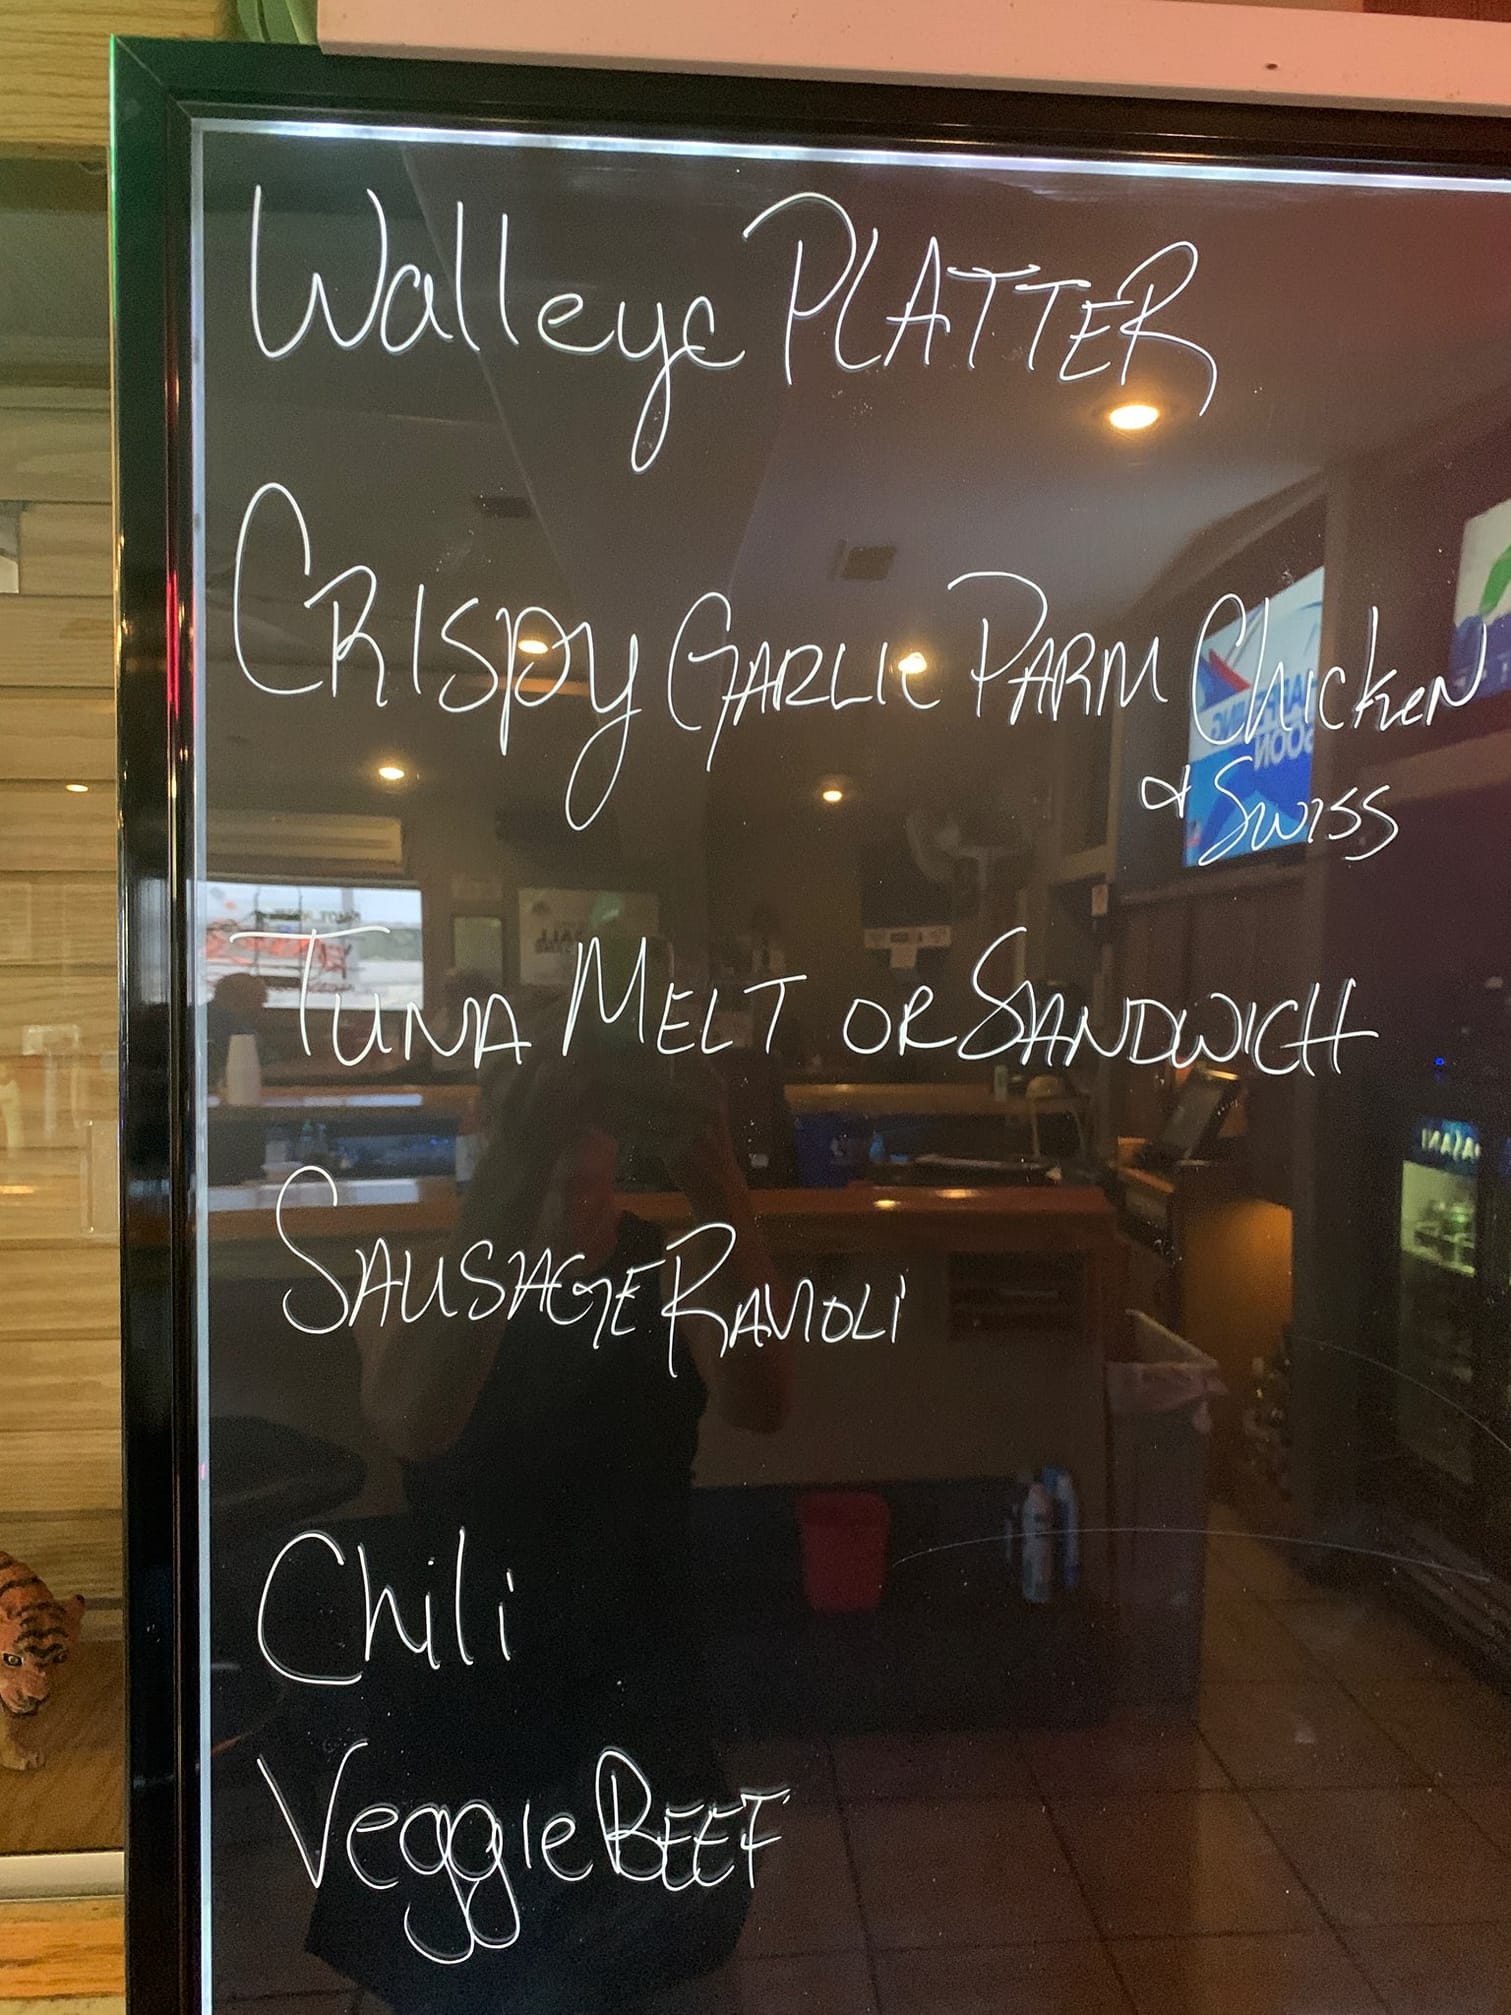 Walleye PLATTER
CRISPY GARLIC PARM Chicken
& SWISS
TUNA MELT OR SANDWICH
SAUSAGE RAVIOLI
Chili
Veggie BEEF